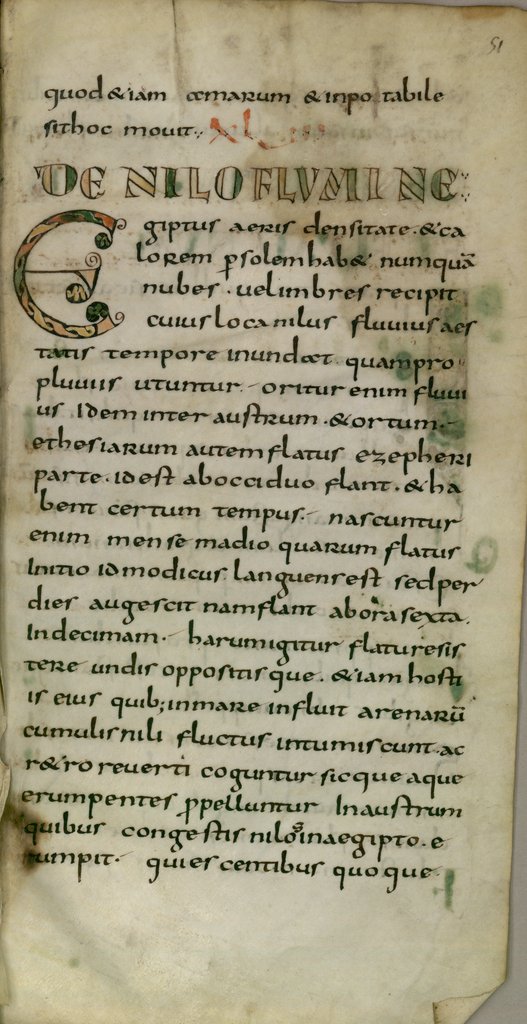 51
quod &iam amarum & inpotabile
sithoc mouit:, XL
DE NILO FLUMINE:
Egiptus aeris densitate. &ca
lorem psolem hab& numquã
nubes. uelimbres recipit
cuius loca nilus fluuius aes
tatis tempore inundat quampro
pluuiis utuntur. oritur enim fluui
us idem inter austrum. &ortum.
ethesiarum autem flatus ezepheri
parte. idest abocciduo flant. &ha
bent certum tempus. nascuntur
enim mense madio quarum flatus
Initio id modicus languens est sed per
dies augescit nam flant ab ora sexta.
Indecimam. harum igitur flatu resis
tere undis oppositisque. &iam hosti
is eius quib; inmare influit arenarũ
cumulis nili fluctus intumiscunt. ac
r&ro reuerti coguntur sicque aque
erumpentes ppelluntur In austrum
quibus congestis nilus in aegipto. e
rumpit. quiescentibus quoque